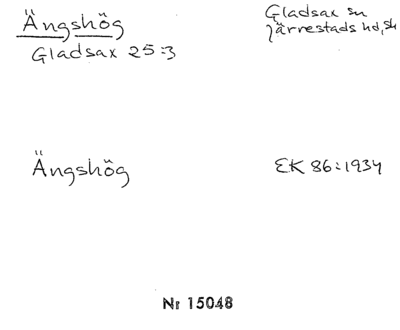 Ängshög
Gladsax 25:3
Gladsax sn
Järrestads hd, Sk
Ängshög
EK 86:1934
Nr 15048